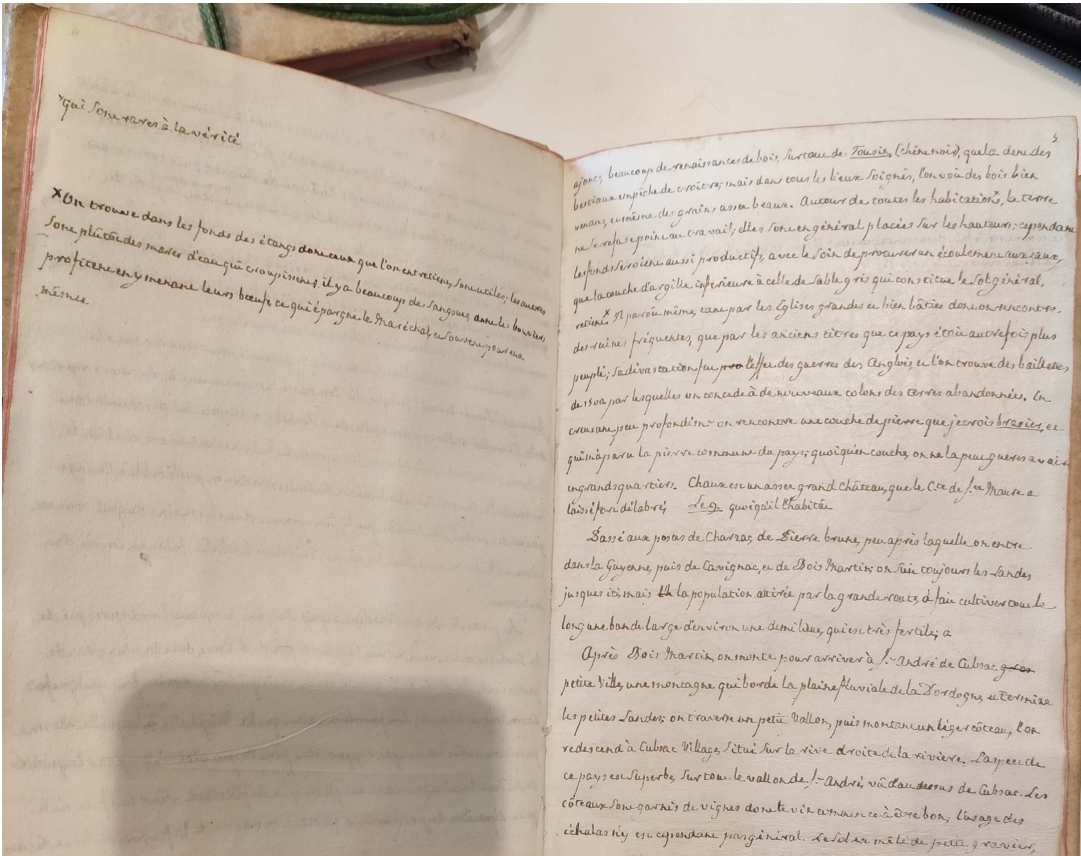 *qui sont rares à la vérité
×On trouve dans les fonds des étangs dont ceux que l'on entretient, sont utiles; les autres
sont plûtot des mares d'eau qui croupissent, il y a beaucoup de sangsues, les bouviers
profitent en y menant leurs bœufs ce qui épargne le Maréchal, et souvent pour eux
mêmes.
5
ajoncs, beaucoup de renaissances de bois, surtout de Tousin, (chêne noir), que la dent des
bestiaux empêche de croitre; mais dans tous les lieux soignés, l'on voit des bois bien
venans, et même des grains assez beaux. Autour de toutes les habitations, la terre
ne se refuse point au travail; elles sont en général placées sur les hauteurs; cependant
les fonds seroient aussi productifs, avec le soin de procurer un écoulement aux eaux,
que la couche d'argille inférieure à celle de sable gris qui constitue le sol général,
retient.× Il paroît même, tant par les Eglises grandes et bien bâties dont on rencontre
des ruines fréquentes, que par les anciens titres que ce pays étoit autrefois plus
peuplé; sa dévastation fut l'effet des guerres des Anglois, et l'on trouve des baillettes
de 1500 par lesquelles on concede à de nouveaux colons des terres abandonnées. En
creusant peu profondémt on rencontre une couche de pierre que je crois brasier, et
qui m'a paru la pierre commune du pays; quoiqu'en couche, on ne la peut gueres avoir
en grands quartiers. Chaux est un assez grand Château, que le C.te de S.te Maure a
laissé fort délabré, quoiqu'il l'habitât Le 9.
Passé aux postes de Charzac, de Pierre brune, peu après laquelle on entre
dans la Guyenne, puis de Cavignac, et de Bois Martin; on suit toujours les Landes
jusques ici, mais la population attirée par la grande route, a fait cultiver tout le
long une bande large d'environ une demi lieue, qui est très fertile; a
Après Bois Martin, on monte pour arriver à S.t André de Cubsac gros
petite Ville, une montagne qui borde la plaine fluviale de la Dordogne, et termine
les petites Landes; on traverse un petit vallon, puis montant un léger côteau, l'on
redescend à Cubsac Village, situé sur la rive droite de la rivière. L'aspect de
ce pays est superbe, surtout le vallon de S.t André, vû d'au dessus de Cubsac. Les
côteaux sont garnis de vignes dont le vin commence à être bon; l'usage des
échalas n'y est cependant pas général. Le sol est mêlé de petit gravier,